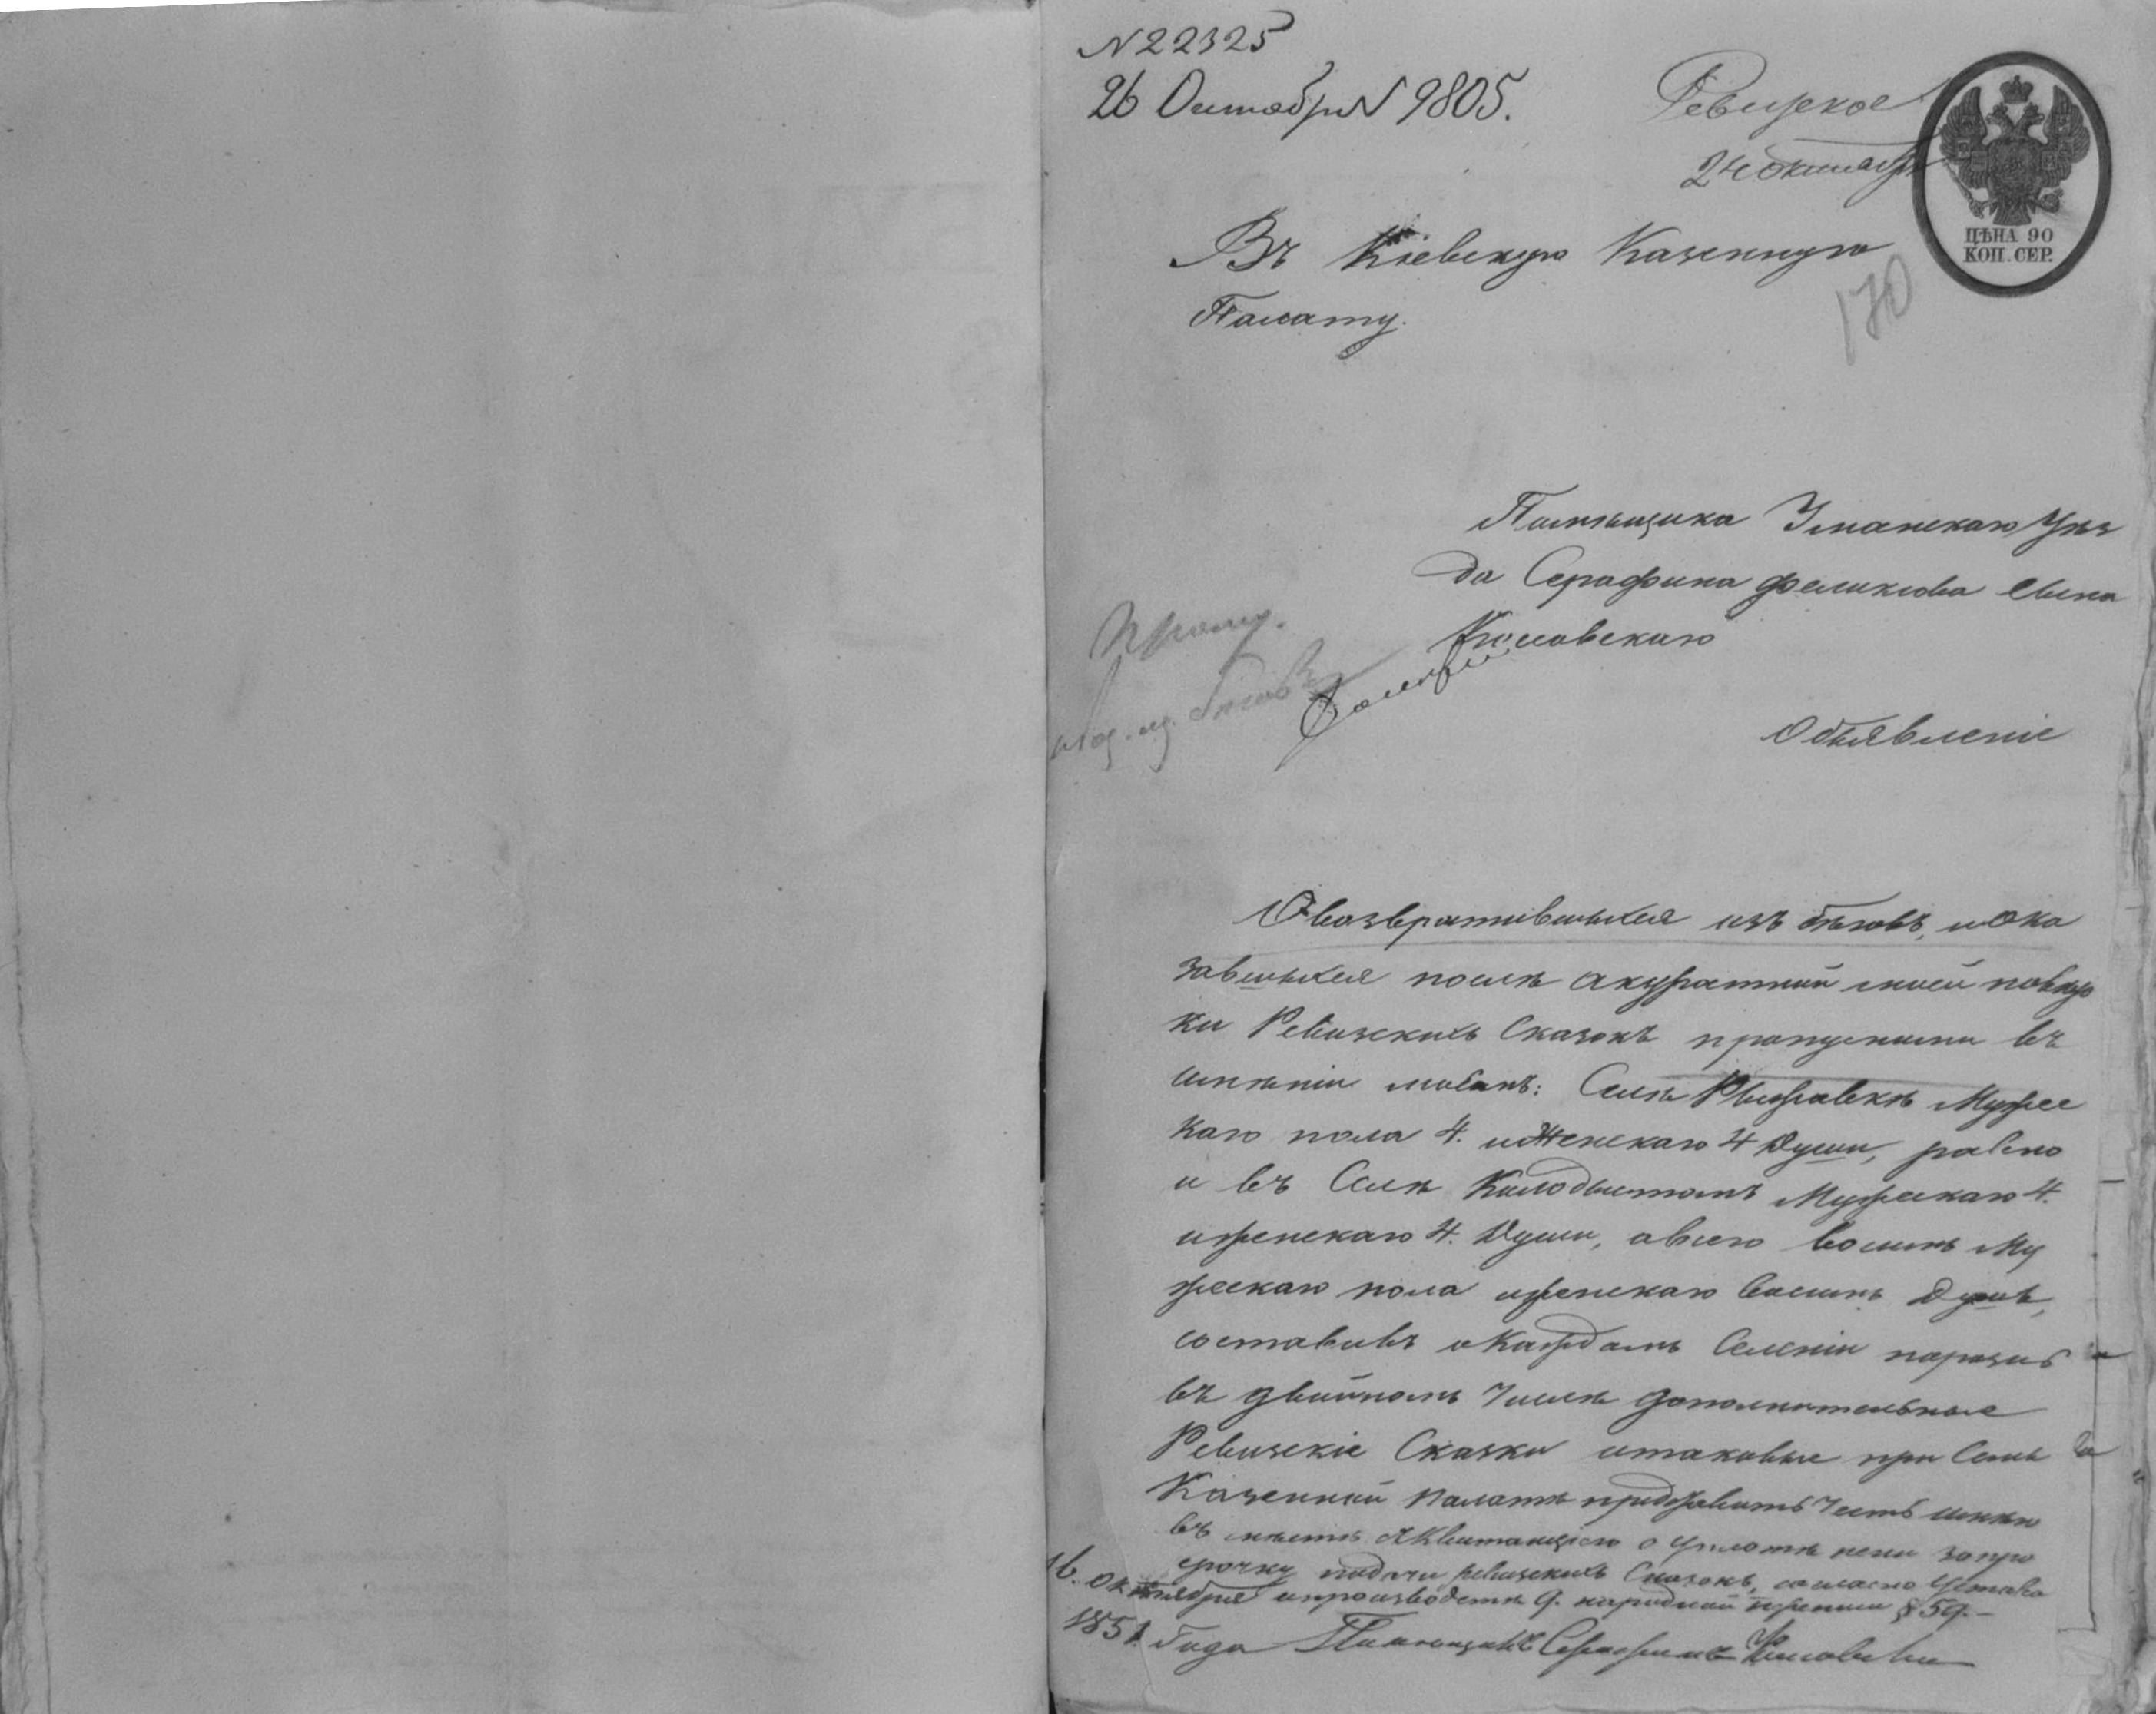 N 22325
26 Октября N 9805.
Ревизское
24 октября
ЦѢНА 90
КОП. СЕР.
170
Въ Кіевскую Казенную
Палату.
Помѣщика Уманскаго Уѣз
да Серафина Феликсова сына
Объявленіе
О возвратившихся изъ бѣговъ, и ока
завшихся послѣ акуратной моей повѣр
ки Ревизскихъ Сказокъ пропускными въ
имѣніи моемъ: Селѣ Рыжавкѣ Мужес
каго пола 4. и Женскаго 4 души, равно
и въ Селѣ Колодистомъ Мужескаго 4.
и женскаго 4. души, а всего восемь Му
жескаго пола и женскаго восемь душъ,
составивъ о каждомъ Селеніи порознь
въ двойномъ числѣ дополнительные
Ревизскіе Сказки и таковые при семъ
Казенной Палатѣ представить честь имѣю
въ мѣстѣ съ Квитанціею о уплатѣ пени за про
срочку подачи ревизскихъ Сказокъ, согласно Устава
16. октября о производствѣ 9. народной переписи § 59.-
1851 года Помѣщикъ Серафинъ